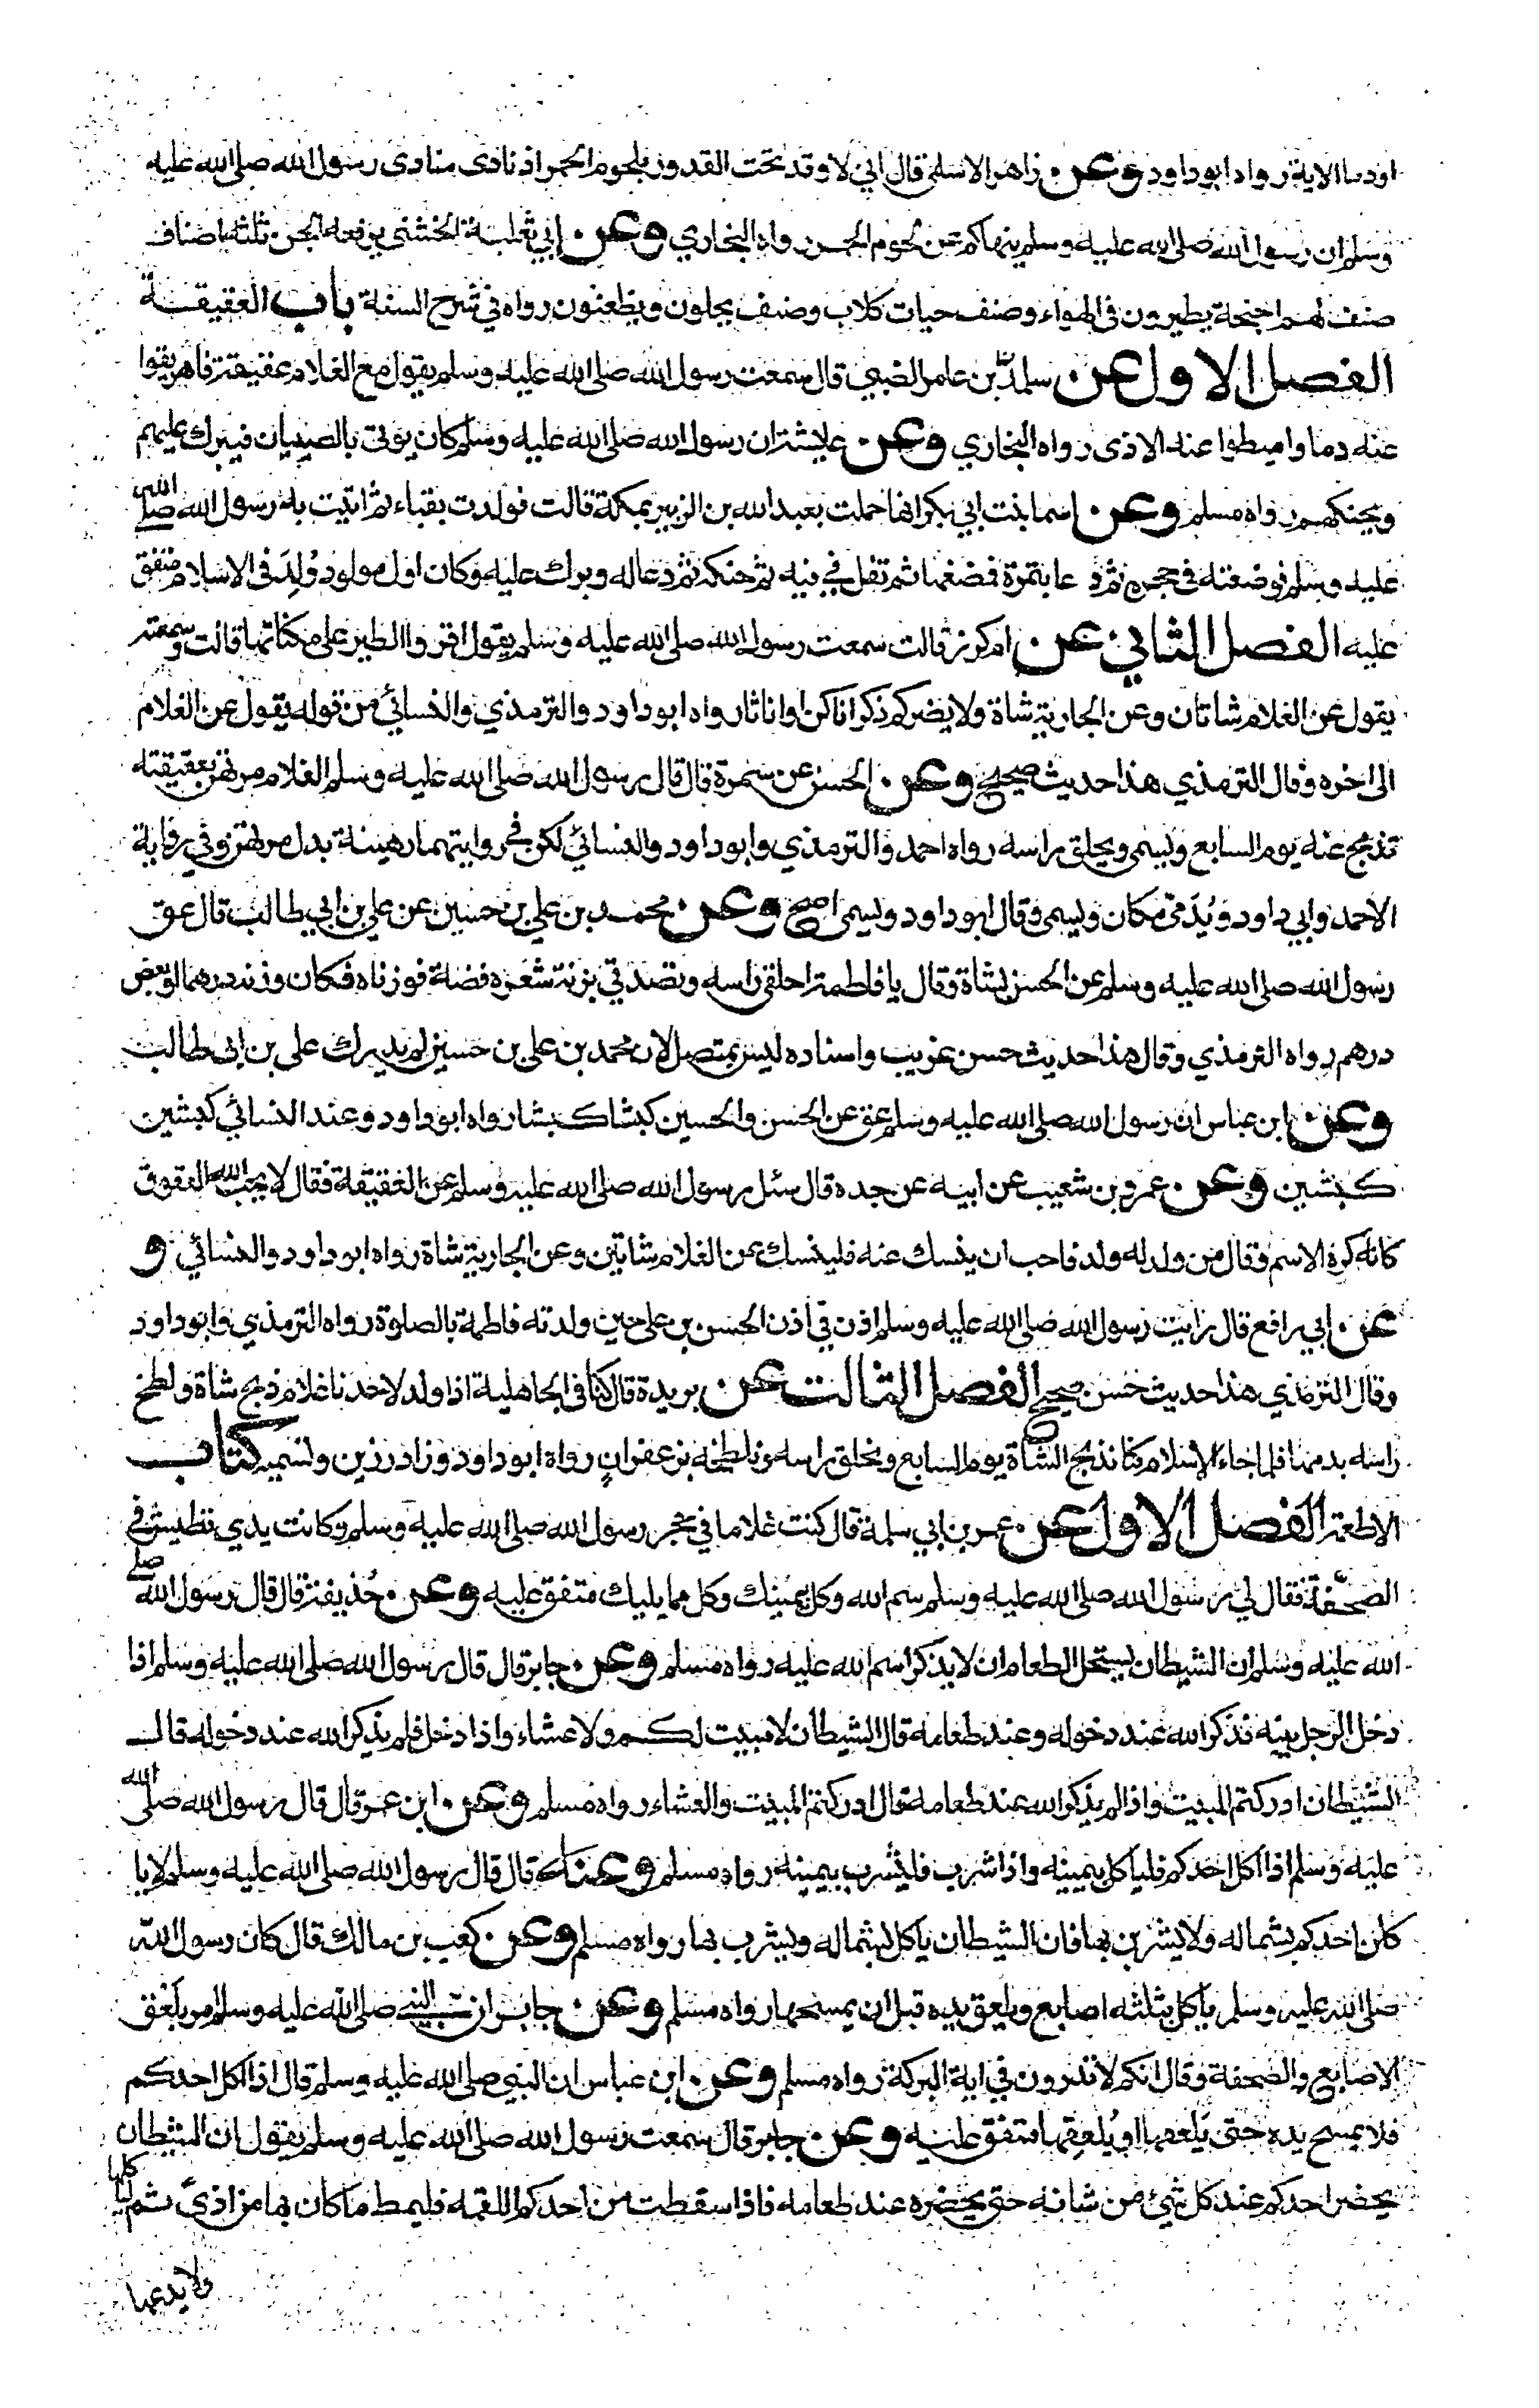 اودما الاية رواه ابوداود وعن زاهر الاسلمي قال اني لاوقد تحت القدور بلحوم الحمر اذ نادى منادى رسول الله صلى الله عليه
وسلم ان رسول الله صلى الله عليه وسلم ينهاكم عن لحوم الحمر رواه البخاري وعن ابي ثعلبة الخشني يرفعه الجن ثلثة اصناف
صنف لهم اجنحة يطيرون في الهواء وصنف حيات كلاب وصنف يحلون ويظعنون رواه في شرح السنة باب العقيقة
الفصل الاول عن سلمان بن عامر الضبي قال سمعت رسول الله صلى الله عليه وسلم يقول مع الغلام عقيقة فاهريقوا
عنه دما واميطوا عنه الاذى رواه البخاري وعن عايشة ان رسول الله صلى الله عليه وسلم كان يوتى بالصبيان فيبرك عليهم
ويحنكهم رواه مسلم وعن اسما بنت ابي بكر انها حملت بعبد الله بن الزبير بمكة قالت فولدت بقباء ثم اتيت به رسول الله صلى الله
عليه وسلم فوضعته في حجره ثم دعا بتمرة فمضغها ثم تفل في فيه ثم حنكه ثم دعا له وبرك عليه وكان اول مولود وُلِدَ في الاسلام متفق
عليه الفصل الثاني عن ام كرز قالت سمعت رسول الله صلى الله عليه وسلم يقول اقروا الطير على مكناتها قالت وسمعته
يقول عن الغلام شاتان وعن الجارية شاة ولا يضركم ذكرانا كن او اناثا رواه ابوداود والترمذي والنسائي من قوله يقول عن الغلام
الى اخره وقال الترمذي هذا حديث صحيح وعن الحسن عن سمرة قال قال رسول الله صلى الله عليه وسلم الغلام مرتهن بعقيقته
تذبح عنه يوم السابع ويسمى ويحلق راسه رواه احمد والترمذي وابوداود والنسائي لكن في روايتهما رهينة بدل مرتهن وفي رواية
لاحمد وابي داود ويُدَمّى مكان ويسمى وقال ابوداود ويسمى اصح وعن محمد بن علي بن حسين عن علي بن ابي طالب قال عق
رسول الله صلى الله عليه وسلم عن الحسن بشاة وقال يا فاطمة احلقي راسه وتصدقي بزنة شعره فضة فوزناه فكان وزنه درهما او بعض
درهم رواه الترمذي وقال هذا حديث حسن غريب واسناده ليس بمتصل لان محمد بن علي بن حسين لم يدرك علي بن ابي طالب
وعن ابن عباس ان رسول الله صلى الله عليه وسلم عق عن الحسن والحسين كبشا كبشا رواه ابوداود وعند النسائي كبشين
كبشين وعن عمرو بن شعيب عن ابيه عن جده قال سئل رسول الله صلى الله عليه وسلم عن العقيقة فقال لا يحب الله العقوق
كانه كره الاسم وقال من ولد له ولد فاحب ان ينسك عنه فلينسك عن الغلام شاتين وعن الجارية شاة رواه ابوداود والنسائي و
عن ابي رافع قال رايت رسول الله صلى الله عليه وسلم اذن في اذن الحسن بن علي حين ولدته فاطمة بالصلوة رواه الترمذي وابوداود
وقال الترمذي هذا حديث حسن صحيح الفصل الثالث عن بريدة قال كنا في الجاهلية اذا ولد لاحدنا غلام ذبح شاة ولطخ
راسه بدمها فلما جاء الاسلام كنا نذبح الشاة يوم السابع ونحلق راسه ونلطخه بزعفران رواه ابوداود وزاد رزين ونسميه كتاب
الاطعمة الفصل الاول عن عمر بن ابي سلمة قال كنت غلاما في حجر رسول الله صلى الله عليه وسلم وكانت يدي تطيش في
الصحفة فقال لي رسول الله صلى الله عليه وسلم سم الله وكل بيمينك وكل مما يليك متفق عليه وعن حُذيفة قال قال رسول الله صلى
الله عليه وسلم ان الشيطان يستحل الطعام ان لا يذكر اسم الله عليه رواه مسلم وعن جابر قال قال رسول الله صلى الله عليه وسلم اذا
دخل الرجل بيته فذكر الله عند دخوله وعند طعامه قال الشيطان لا مبيت لكم ولا عشاء واذا دخل فلم يذكر الله عند دخوله قال
الشيطان ادركتم المبيت واذا لم يذكر الله عند طعامه قال ادركتم المبيت والعشاء رواه مسلم وعن ابن عمر قال قال رسول الله صلى الله
عليه وسلم اذا اكل احدكم فلياكل بيمينه واذا شرب فليشرب بيمينه رواه مسلم وعنه قال قال رسول الله صلى الله عليه وسلم لا يا
كلن احدكم بشماله ولا يشربن بها فان الشيطان ياكل بشماله ويشرب بها رواه مسلم وعن كعب بن مالك قال كان رسول الله
صلى الله عليه وسلم ياكل بثلثة اصابع ويلعق يده قبل ان يمسحها رواه مسلم وعن جابر ان النبي صلى الله عليه وسلم امر بلعق
الاصابع والصحفة وقال انكم لا تدرون في اية البركة رواه مسلم وعن ابن عباس ان النبي صلى الله عليه وسلم قال اذا اكل احدكم
فلا يمسح يده حتى يَلعقها او يُلعِقها متفق عليه وعن جابر قال سمعت رسول الله صلى الله عليه وسلم يقول ان الشيطان
يحضر احدكم عند كل شيئ من شانه حتى يحضره عند طعامه فاذا سقطت من احدكم اللقمة فليمط ما كان بها من اذىً ثم لياكلها
ولا يدعها